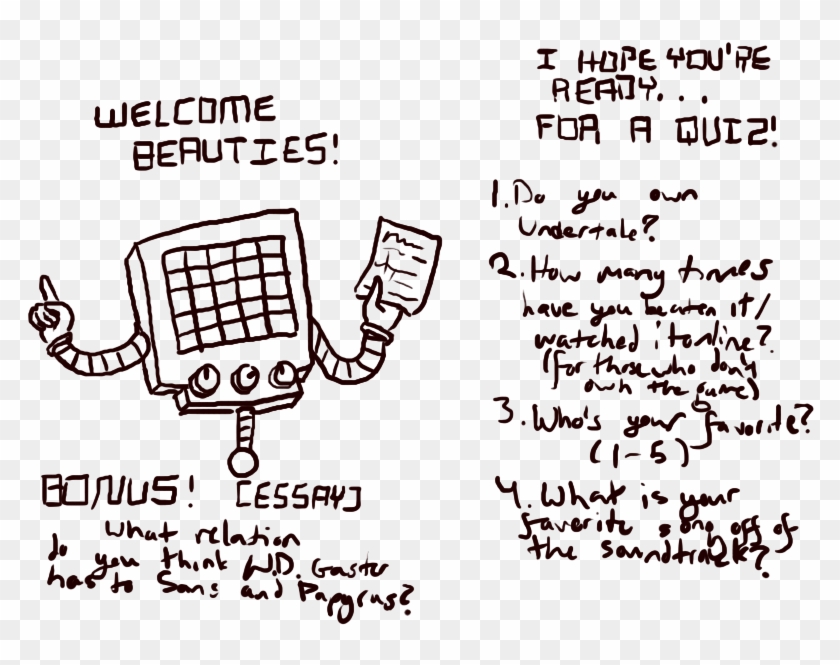 WELCOME
BEAUTIES!
I HOPE YOU'RE
READY...
FOR A QUIZ!
1. Do you own
Undertale?
2. How many times
have you beaten it/
watched it online?
(for those who don't
own the game)
3. Who's your favorite?
(1-5)
4. What is your
favorite song off of
the soundtrack?
BONUS! [ESSAY]
What relation
do you think W.D. Gaster
has to Sans and Papyrus?